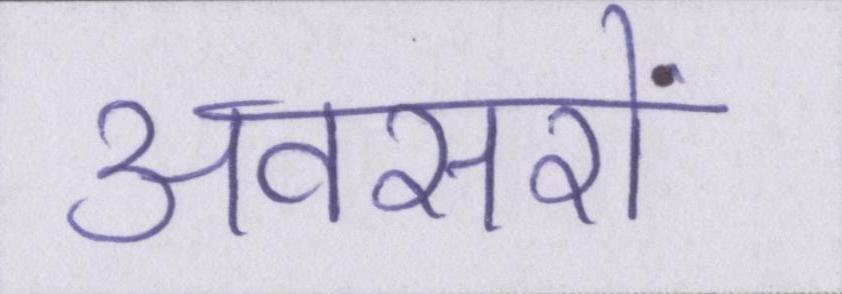 अवसरों